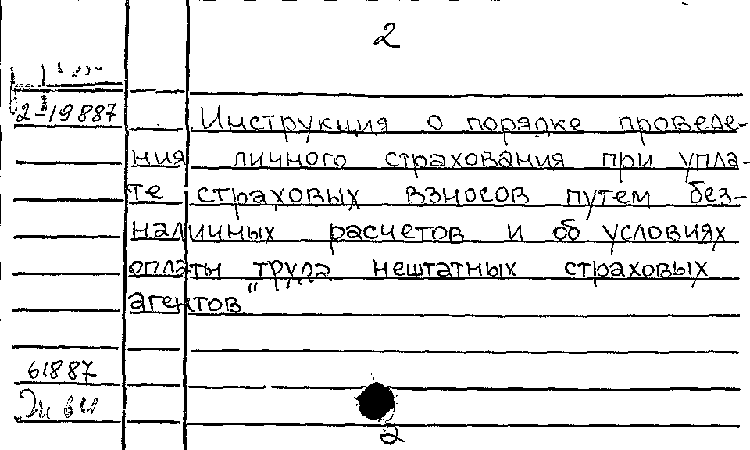 2
2-19887
Инструкция о порядке проведе-
ния личного страхования при упла-
те страховых взносов путем без-
наличных расчетов и об условиях
оплаты труда нештатных страховых
агентов"
61887
2